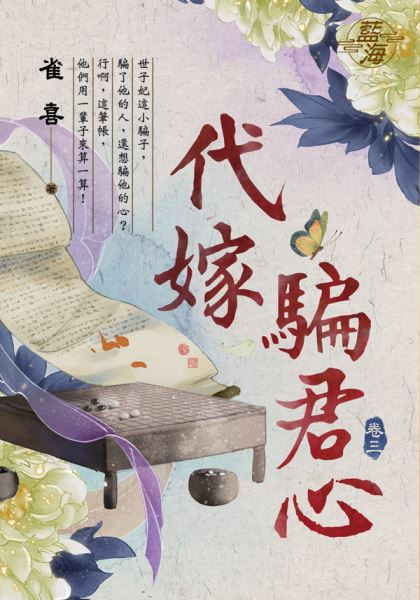 藍海
代嫁
騙君心
卷三
世子妃這小騙子，
騙了他的人，還想騙他的心？
行啊，這筆帳，
他們用一輩子來算一算！
雀喜
著